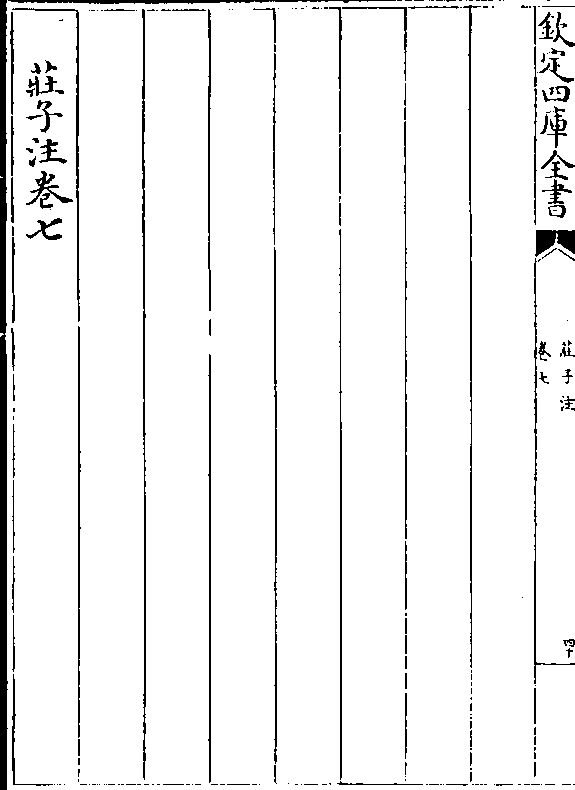 欽定四庫全書
莊子注
卷七
四十
莊子注卷七